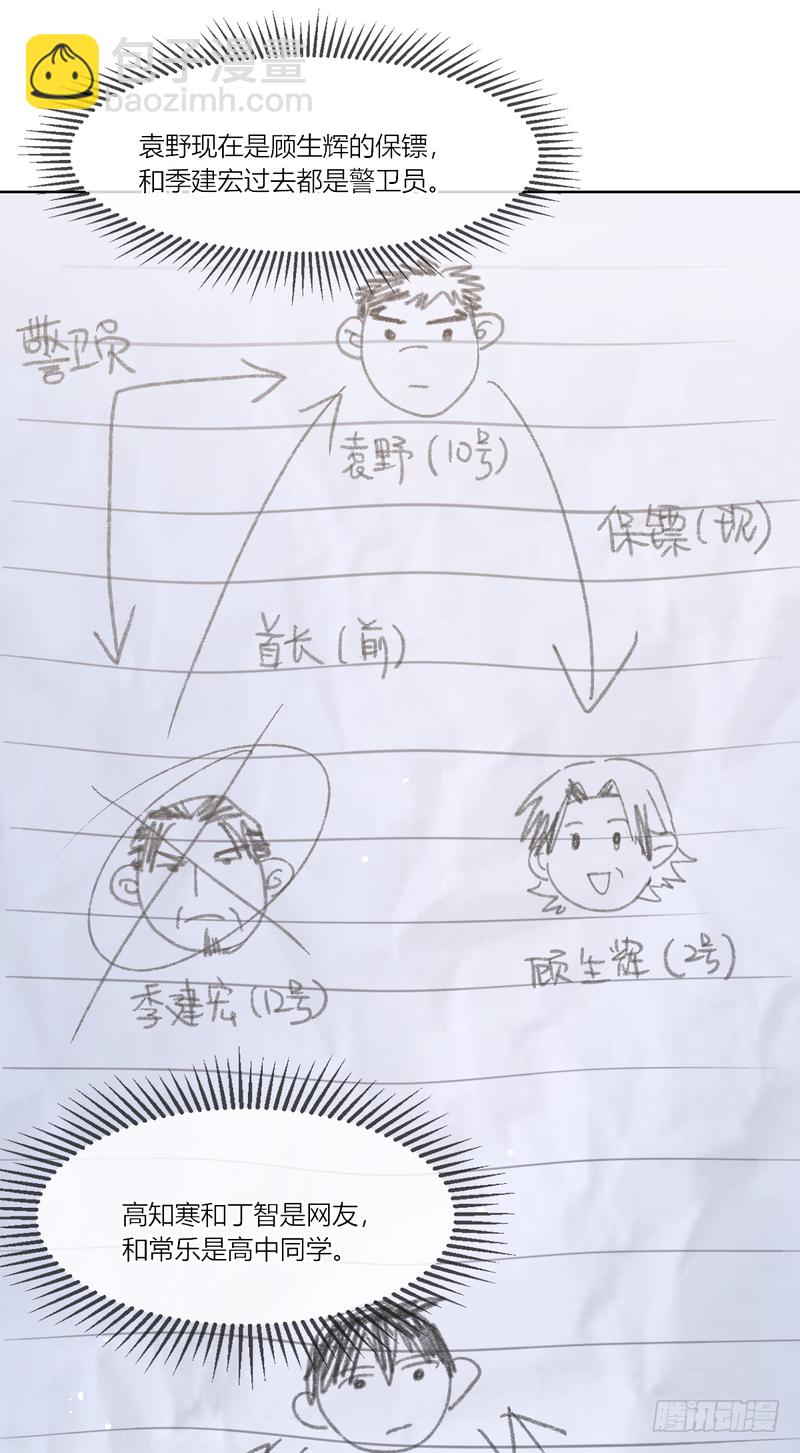 包子漫畫
baozimh.com
袁野现在是顾生辉的保镖，
和季建宏过去都是警卫员。
警卫员
袁野(10号)
保镖(现)
首长(前)
季建宏(12号)
顾生辉(2号)
高知寒和丁智是网友，
和常乐是高中同学。
腾讯动漫